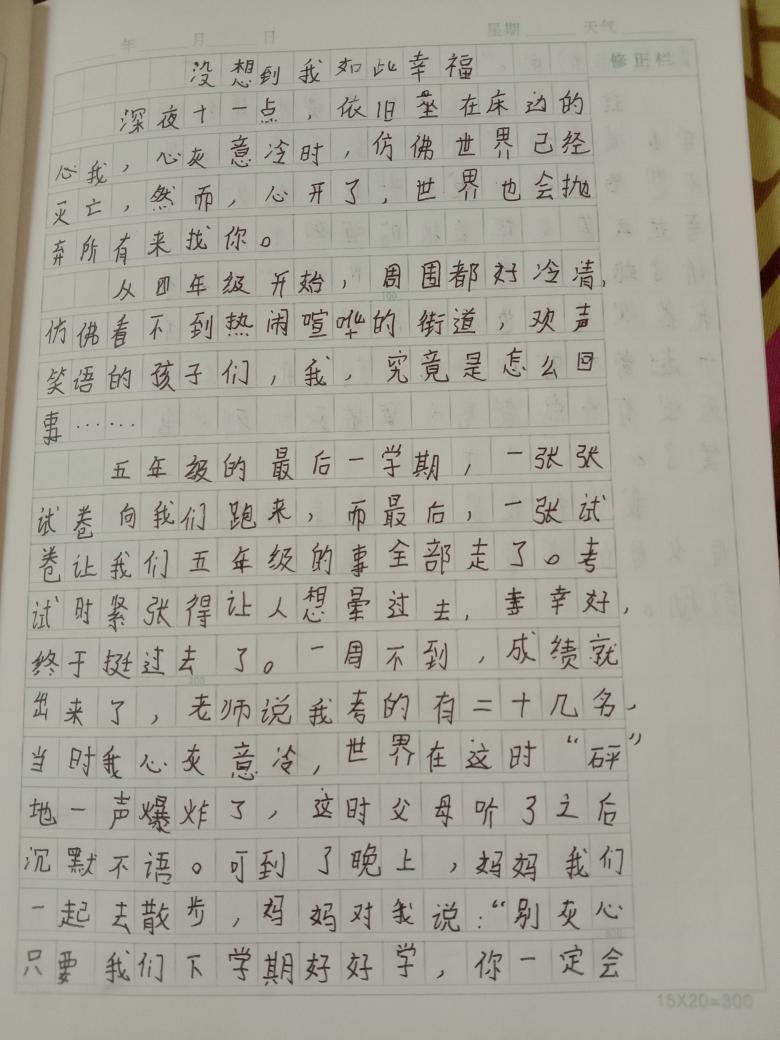 年 月 日 星期 天气
没想到我如此幸福 修正栏
深夜十一点，依旧坐在床边的
心我，心灰意冷时，仿佛世界已经
灭亡，然而，心开了，世界也会抛
弃所有来找你。
从四年级开始，周围都好冷清，
仿佛看不到热闹喧哗的街道，欢声
笑语的孩子们，我，究竟是怎么回
事……
五年级的最后一学期，一张张
试卷向我们跑来，而最后，一张试
卷让我们五年级的事全部走了。考
试时紧张得让人想晕过去，幸幸好，
终于挺过去了。一周不到，成绩就
出来了，老师说我考的有二十几名，
当时我心灰意冷，世界在这时“砰”
地一声爆炸了，这时父母听了之后
沉默不语。可到了晚上，妈妈我们
一起去散步，妈妈对我说：“别灰心
只要我们下学期好好学，你一定会
15X20=300